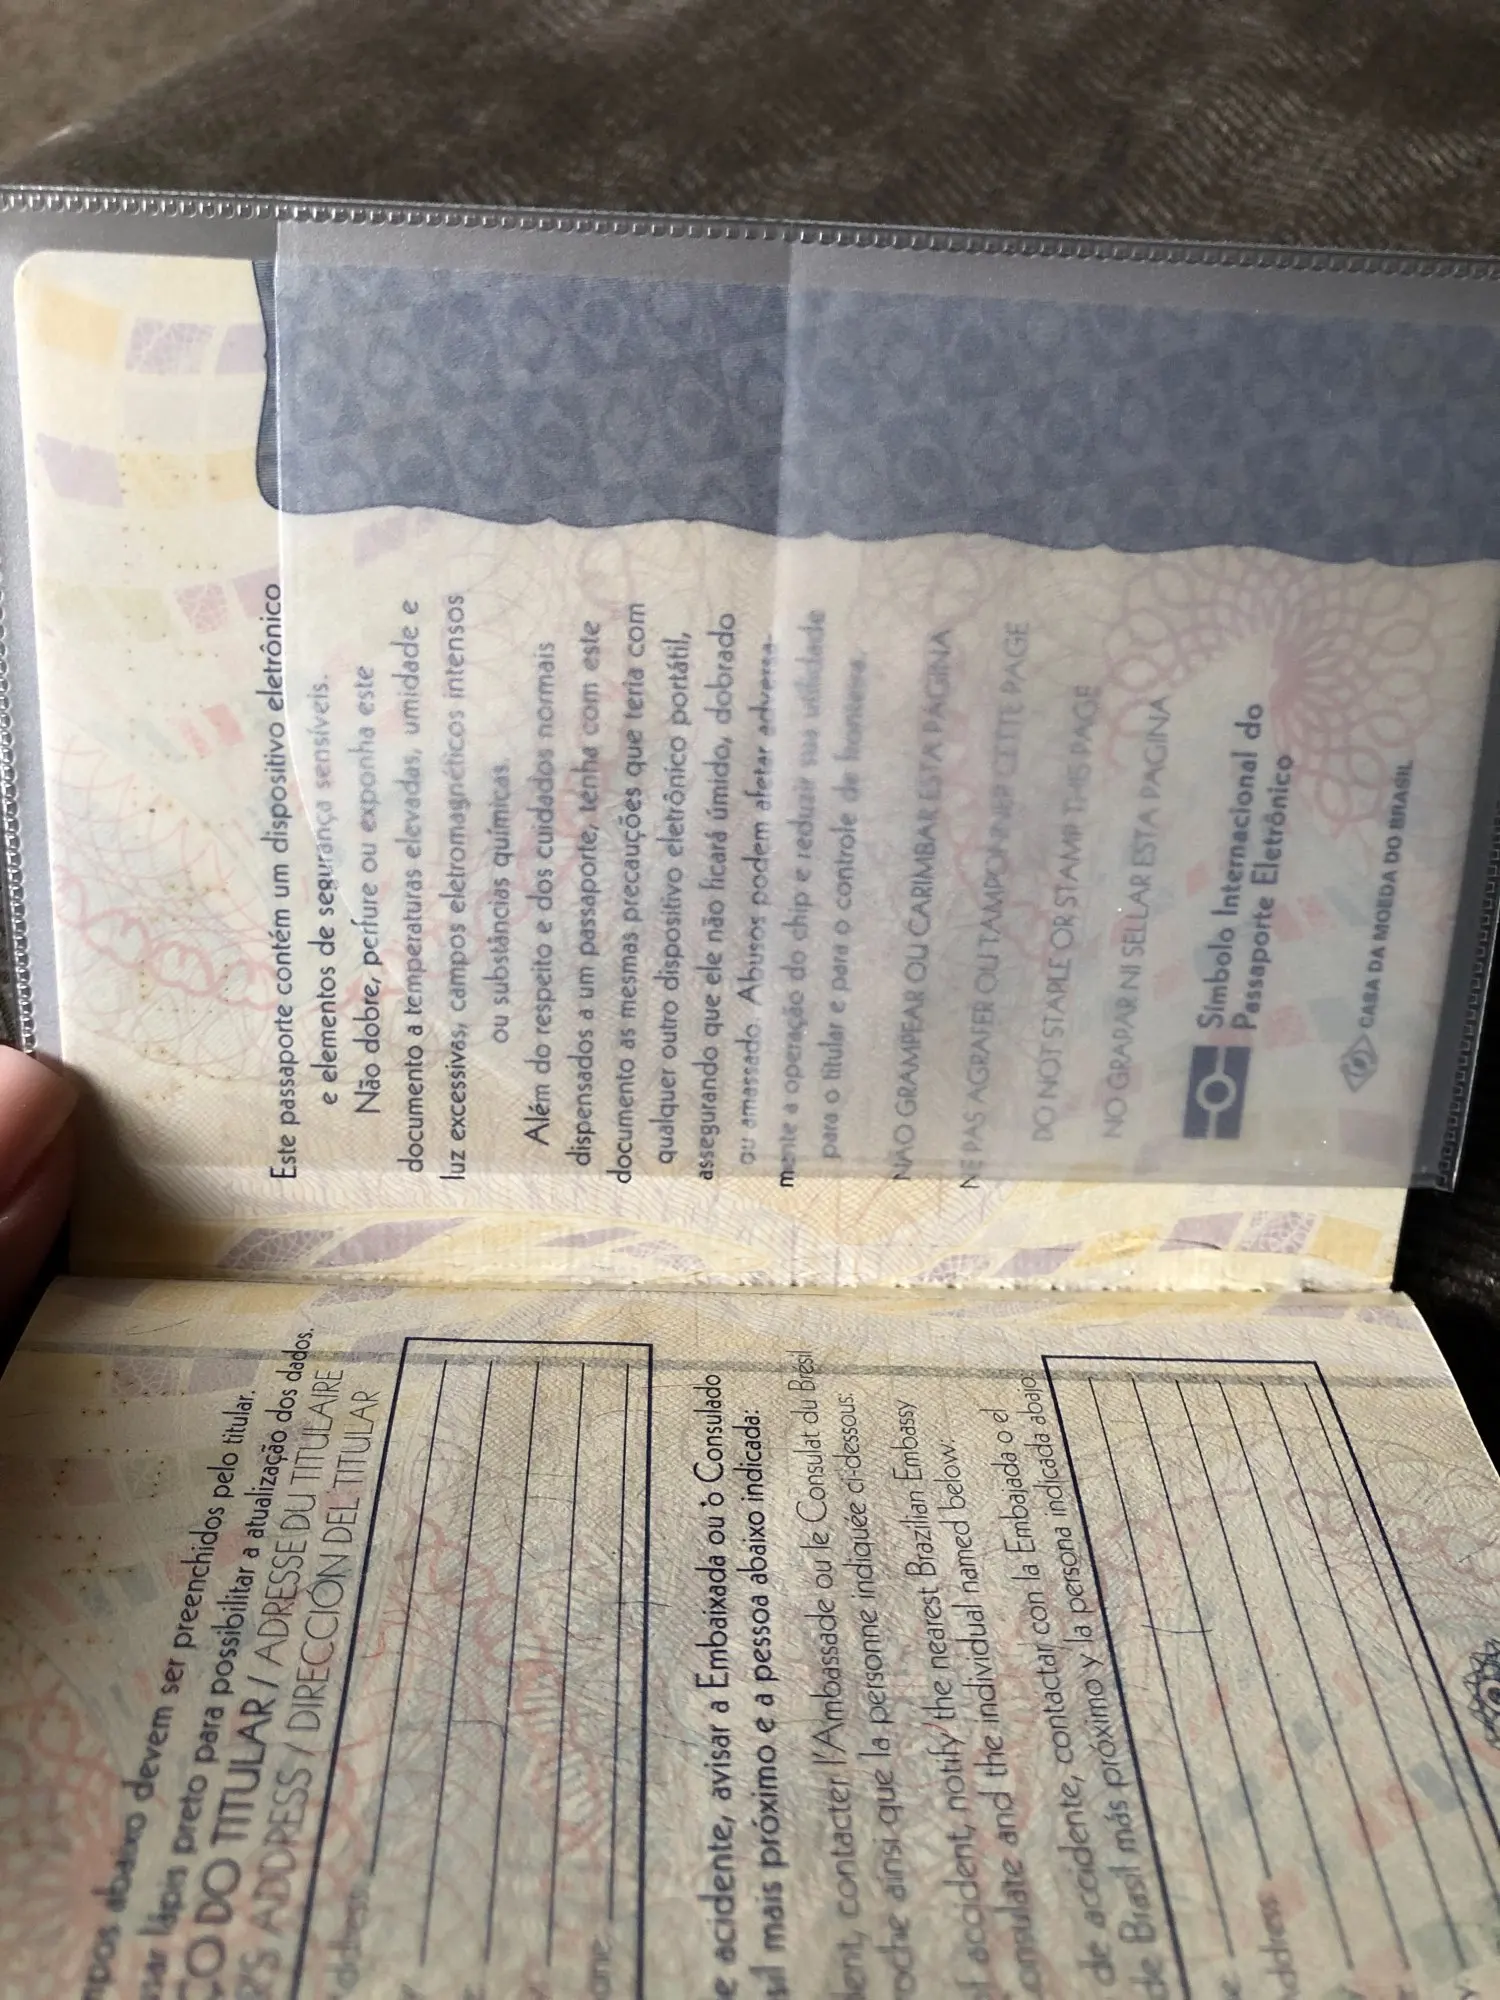 Este passaporte contém um dispositivo eletrônico
e elementos de segurança sensíveis.
Não dobre, perfure ou exponha este
documento a temperaturas elevadas, umidade e
luz excessivas, campos eletromagnéticos intensos
ou substâncias químicas.
Além do respeito e dos cuidados normais
dispensados a um passaporte, tenha com este
documento as mesmas precauções que teria com
qualquer outro dispositivo eletrônico portátil,
assegurando que ele não ficará úmido, dobrado
ou amassado. Abusos podem afetar adversa-
mente a operação do chip e reduzir sua utilidade
para o titular e para o controle de fronteira.
NÃO GRAMPEAR OU CARIMBAR ESTA PÁGINA
NE PAS AGRAFER OU TAMPONNER CETTE PAGE
DO NOT STAPLE OR STAMP THIS PAGE
NO GRAPAR NI SELLAR ESTA PAGINA
Símbolo Internacional do
Passaporte Eletrônico
CASA DA MOEDA DO BRASIL
abaixo devem ser preenchidos pelo titular.
lápis preto para possibilitar a atualização dos dados.
DO TITULAR / ADRESSE DU TITULAIRE
ADDRESS / DIRECCIÓN DEL TITULAR
acidente, avisar a Embaixada ou o Consulado
mais próximo e a pessoa abaixo indicada:
contacter l'Ambassade ou le Consulat du Brésil
ainsi que la personne indiquée ci-dessous:
accident, notify the nearest Brazilian Embassy
and the individual named below:
de accidente, contactar con la Embajada o el
de Brasil más próximo y la persona indicada abajo: